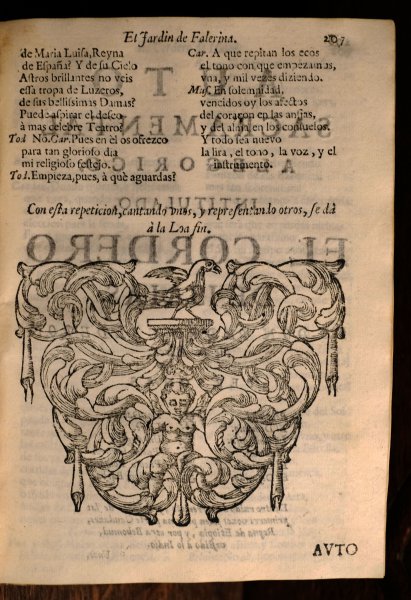 El Jardin de Falerina. 207
de Maria Luisa, Reyna
de España? Y de su Cielo
Astros brillantes no veis
essa tropa de Luzeros,
de sus bellissimas Damas?
Puede aspirar el deseo
à mas celebre Teatro?
Tod. No. Car. Pues en èl os ofrezco
para tan glorioso dia
mi religioso festejo.
Tod. Empieza, pues, à què aguardas?
Car. A que repitan los ecos
el tono con que empezamos,
vna, y mil vezes diziendo.
Mus. En solemnidad,
vencidos oy los afectos
del coraçon en las ansias,
y del alma en los consuelos.
Y todo sea nuevo
la lira, el tono, la voz, y el
instrumento.
Con esta repeticion, cantando vnos, y representando otros, se dà
à la Loa fin.
AVTO